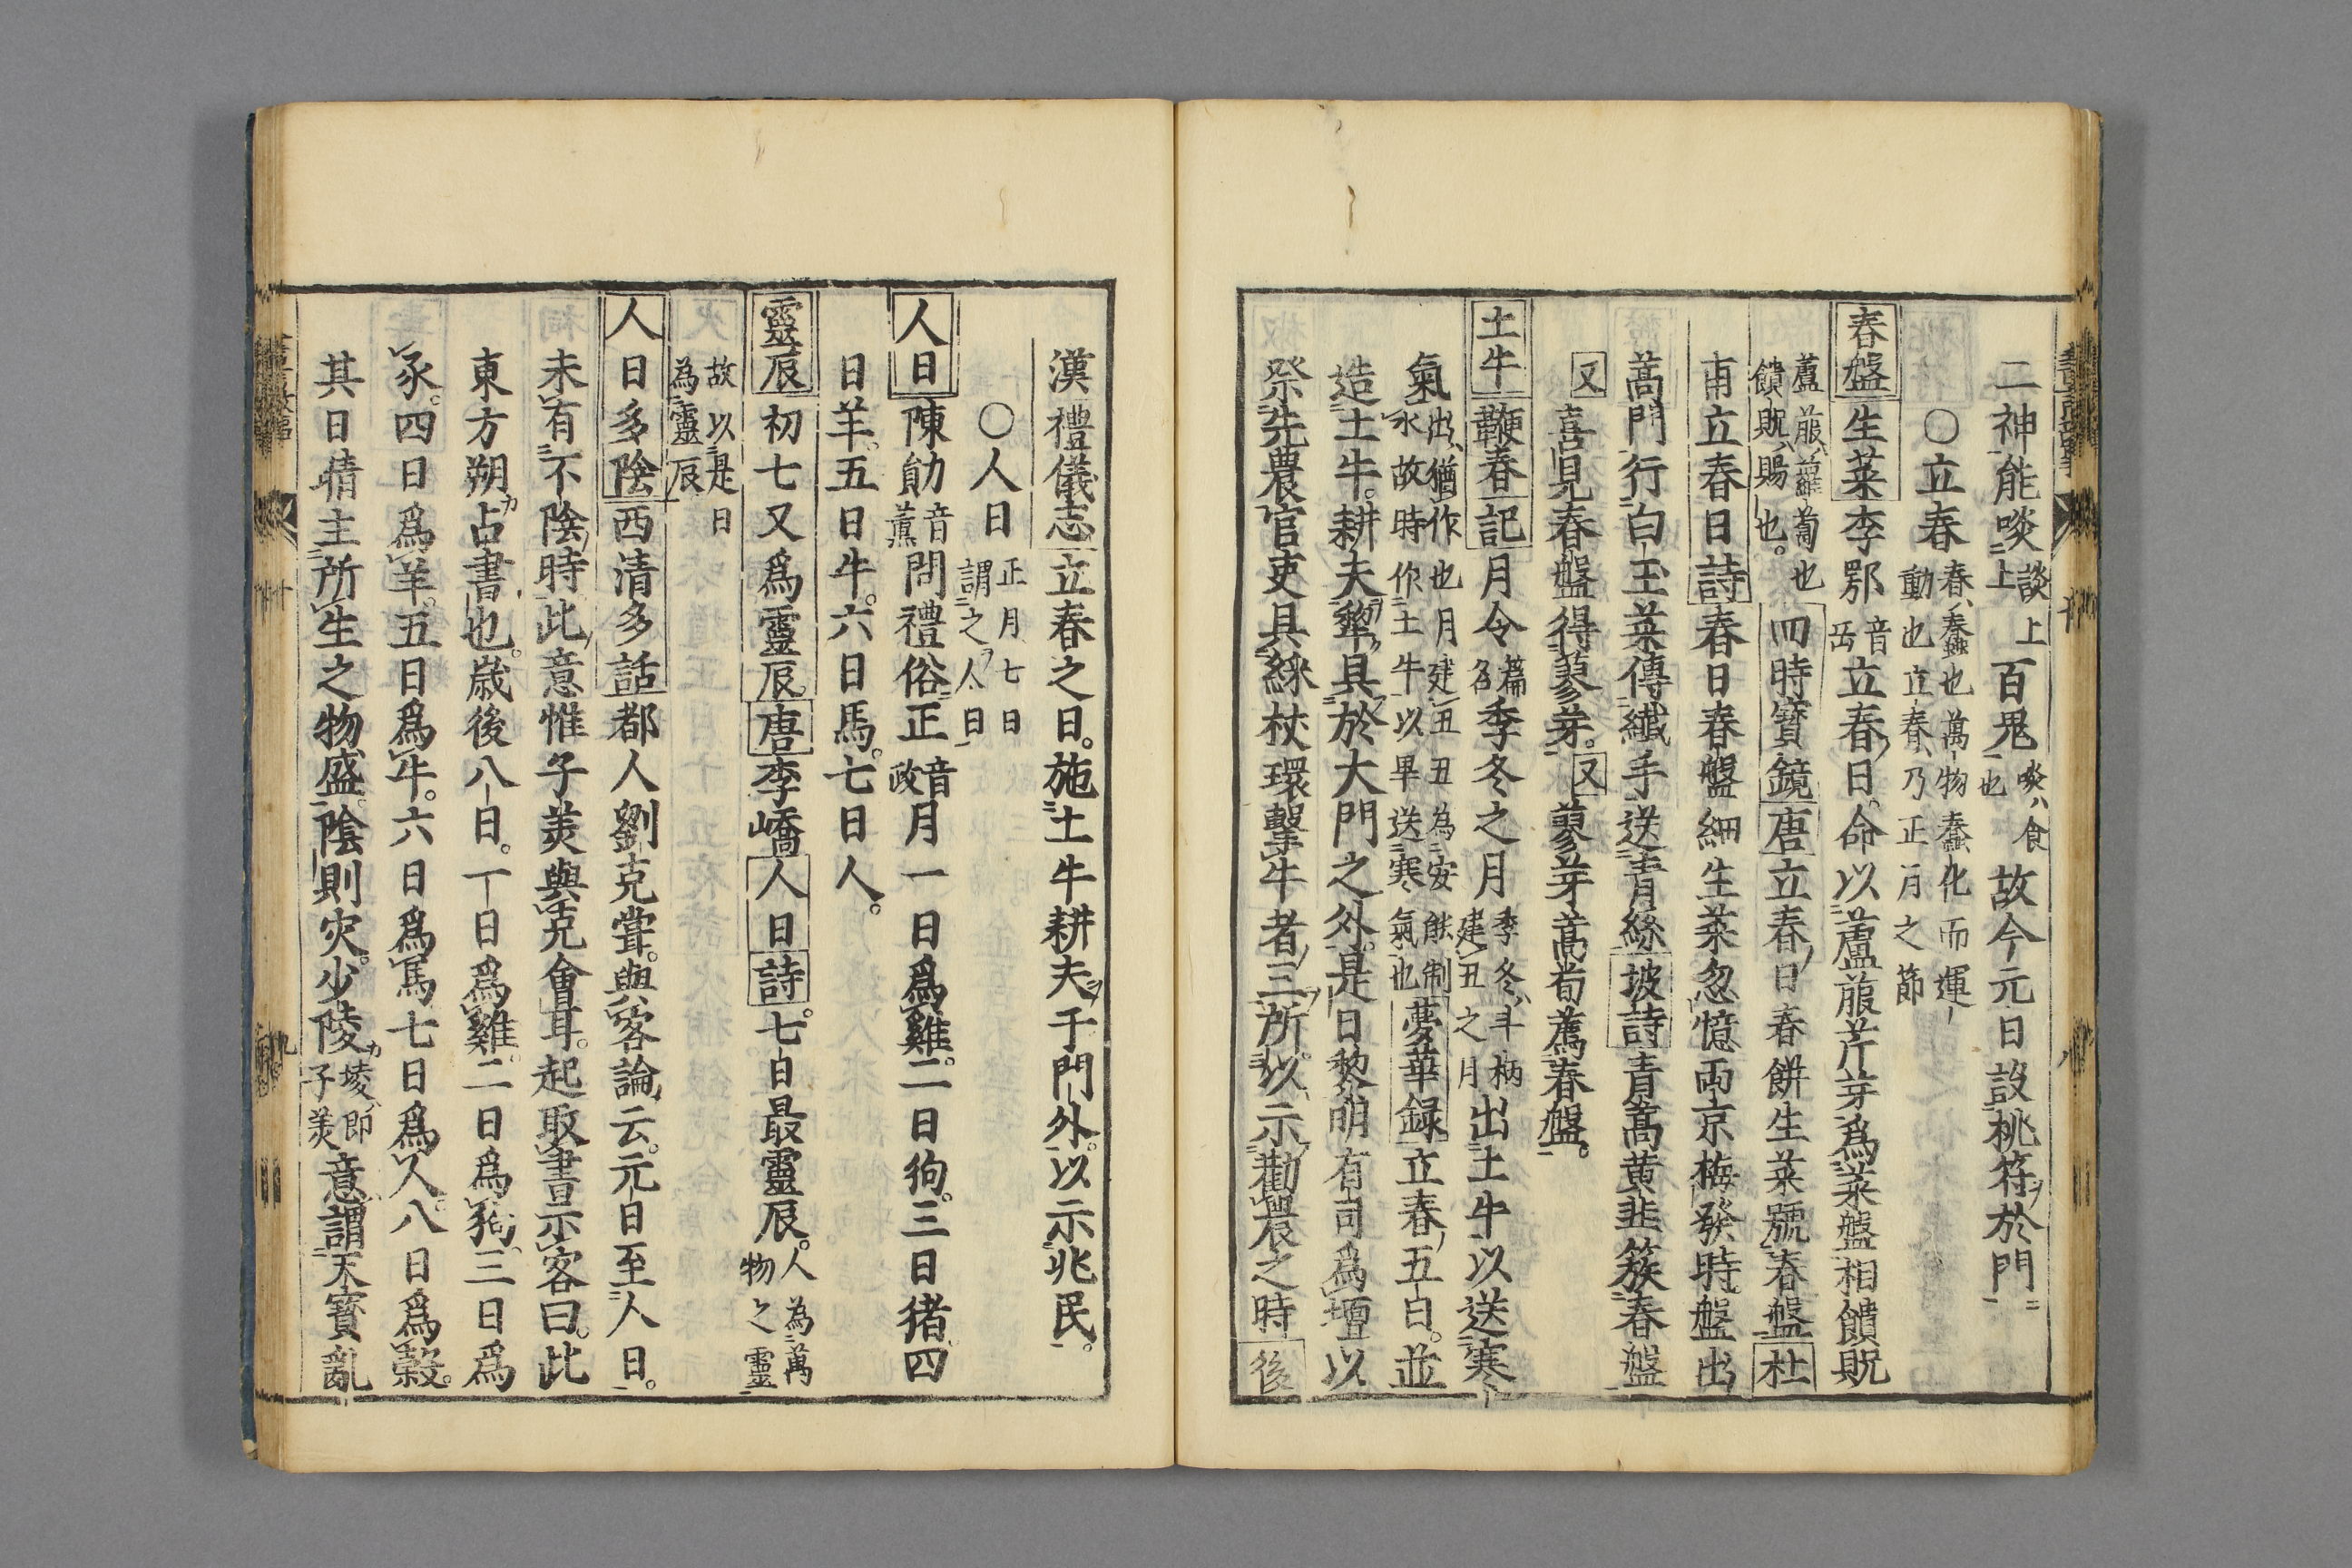 二神能啖談上上百鬼啖ハ食也故今元日設桃符ヲ於門
〇立春春ハ蠢也萬物蠢化而運動也立春ハ乃正月之節
春盤生菜李鄂音岳立春ノ日命以蘆菔芹芽爲菜盤相饋貺
蘆菔ハ蘿蔔也饋貺ハ賜也四時寶鏡唐立春ノ日春餅生菜號春盤杜
甫立春日詩春日春盤細生菜忽憶兩京梅發時盤出
高門行白玉菜傳纖手送青絲坡詩青蒿黄韭簇春盤
又喜見春盤得蓼芽又蓼芽蒿荀薦春盤
土牛鞭春記月令篇名季冬之月季冬ハ斗柄建丑之月出土牛以送寒
氣出ハ猶作也月建丑丑為牛安能制水故時作土牛以畢送寒氣也夢華録立春ノ五日並
造土牛耕夫犂具於大門之外是日黎明有司爲壇以
祭先農官吏具綵杖環擊牛者三所以示勸農之時後
漢禮儀志立春之日施土牛耕夫于門外以示兆民
〇人日正月七日謂之人日
人日陳勛音薫問禮俗正音政月一日爲雞二日狗三日猪四
日羊五日牛六日馬七日人
靈辰初七又爲靈辰唐李嶠人日詩七日最靈辰人為萬物之靈
故以是日為靈辰
人日多陰西清多話都人劉克嘗與客論云元日至人日
未有不陰時此意惟子美與克會耳起取書示客曰此
東方朔占書也歳後八日一日爲雞二日爲狗三日爲
豕四日爲羊五日爲牛六日爲馬七日爲人八日爲穀
其日晴主所生之物盛陰則灾少陵ガ陵ハ即子美意謂天寶亂